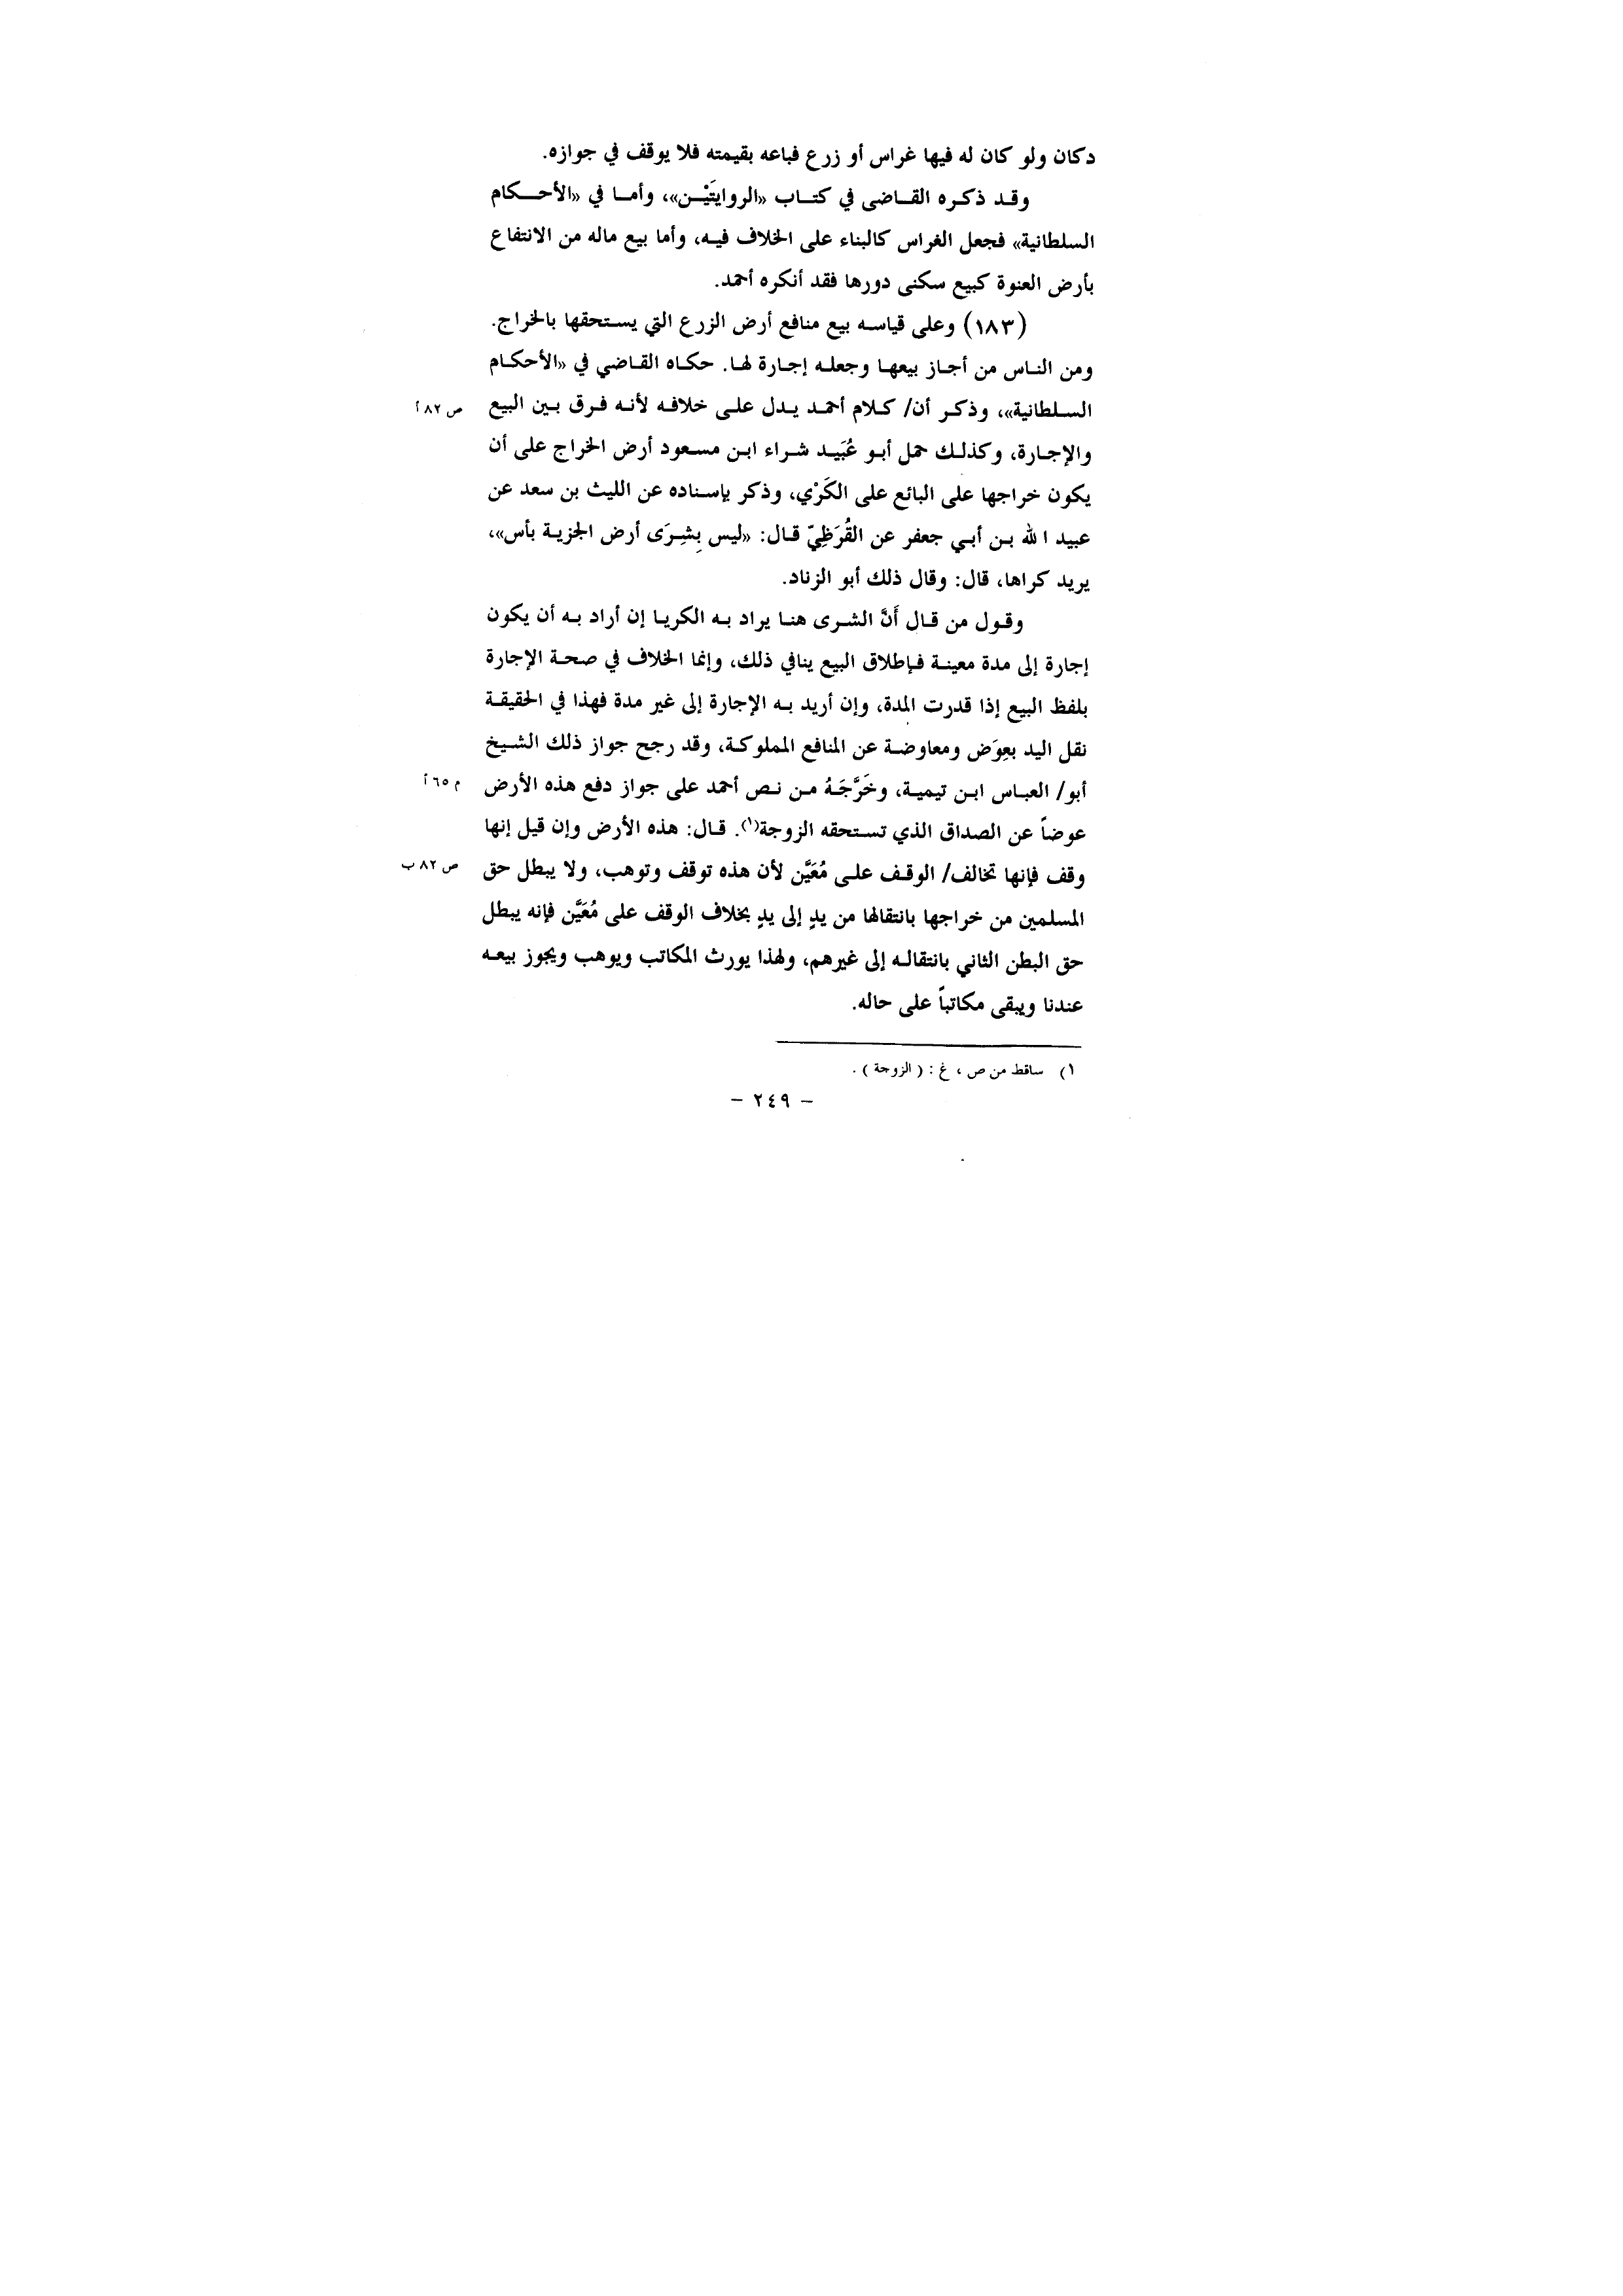 دكان ولو كان له فيها غراس أو زرع فباعه بقيمته فلا يوقف في جوازه.
وقد ذكره القاضى في كتاب «الروايتَيْن»، وأما في «الأحكام
السلطانية» فجعل الغراس كالبناء على الخلاف فيه، وأما بيع ماله من الانتفاع
بأرض العنوة كبيع سكنى دورها فقد أنكره أحمد.
(١٨٣) وعلى قياسه بيع منافع أرض الزرع التي يستحقها بالخراج.
ومن الناس من أجاز بيعها وجعله إجارة لها. حكاه القاضي في «الأحكام
السلطانية»، وذكر أن/ كلام أحمد يدل على خلافه لأنه فرق بين البيع
ص ٨٢ أ
والإجارة، وكذلك حمل أبو عُبَيد شراء ابن مسعود أرض الخراج على أن
يكون خراجها على البائع على الكَرْي، وذكر بإسناده عن الليث بن سعد عن
عبيد الله بن أبي جعفر عن القُرَظِيّ قال: «ليس بِشِرَى أرض الجزية بأس»،
يريد كراها، قال: وقال ذلك أبو الزناد.
وقول من قال أَنَّ الشرى هنا يراد به الكريا إن أراد به أن يكون
إجارة إلى مدة معينة فإطلاق البيع ينافي ذلك، وإنما الخلاف في صحة الإجارة
بلفظ البيع إذا قدرت المدة، وإن أريد به الإجارة إلى غير مدة فهذا في الحقيقة
نقل اليد بعِوَض ومعاوضة عن المنافع المملوكة، وقد رجح جواز ذلك الشيخ
أبو/ العباس ابن تيمية، وخَرَّجَهُ من نص أحمد على جواز دفع هذه الأرض
م ٦٥ أ
عوضاً عن الصداق الذي تستحقه الزوجة(١). قال: هذه الأرض وإن قيل إنها
وقف فإنها تخالف/ الوقف على مُعَيَّن لأن هذه توقف وتوهب، ولا يبطل حق
ص ٨٢ ب
المسلمين من خراجها بانتقالها من يدٍ إلى يدٍ بخلاف الوقف على مُعَيَّن فإنه يبطل
حق البطن الثاني بانتقاله إلى غيرهم، ولهذا يورث المكاتب ويوهب ويجوز بيعه
عندنا ويبقى مكاتباً على حاله.
١) ساقط من ص ، غ : ( الزوجة ) .
– ٢٤٩ –